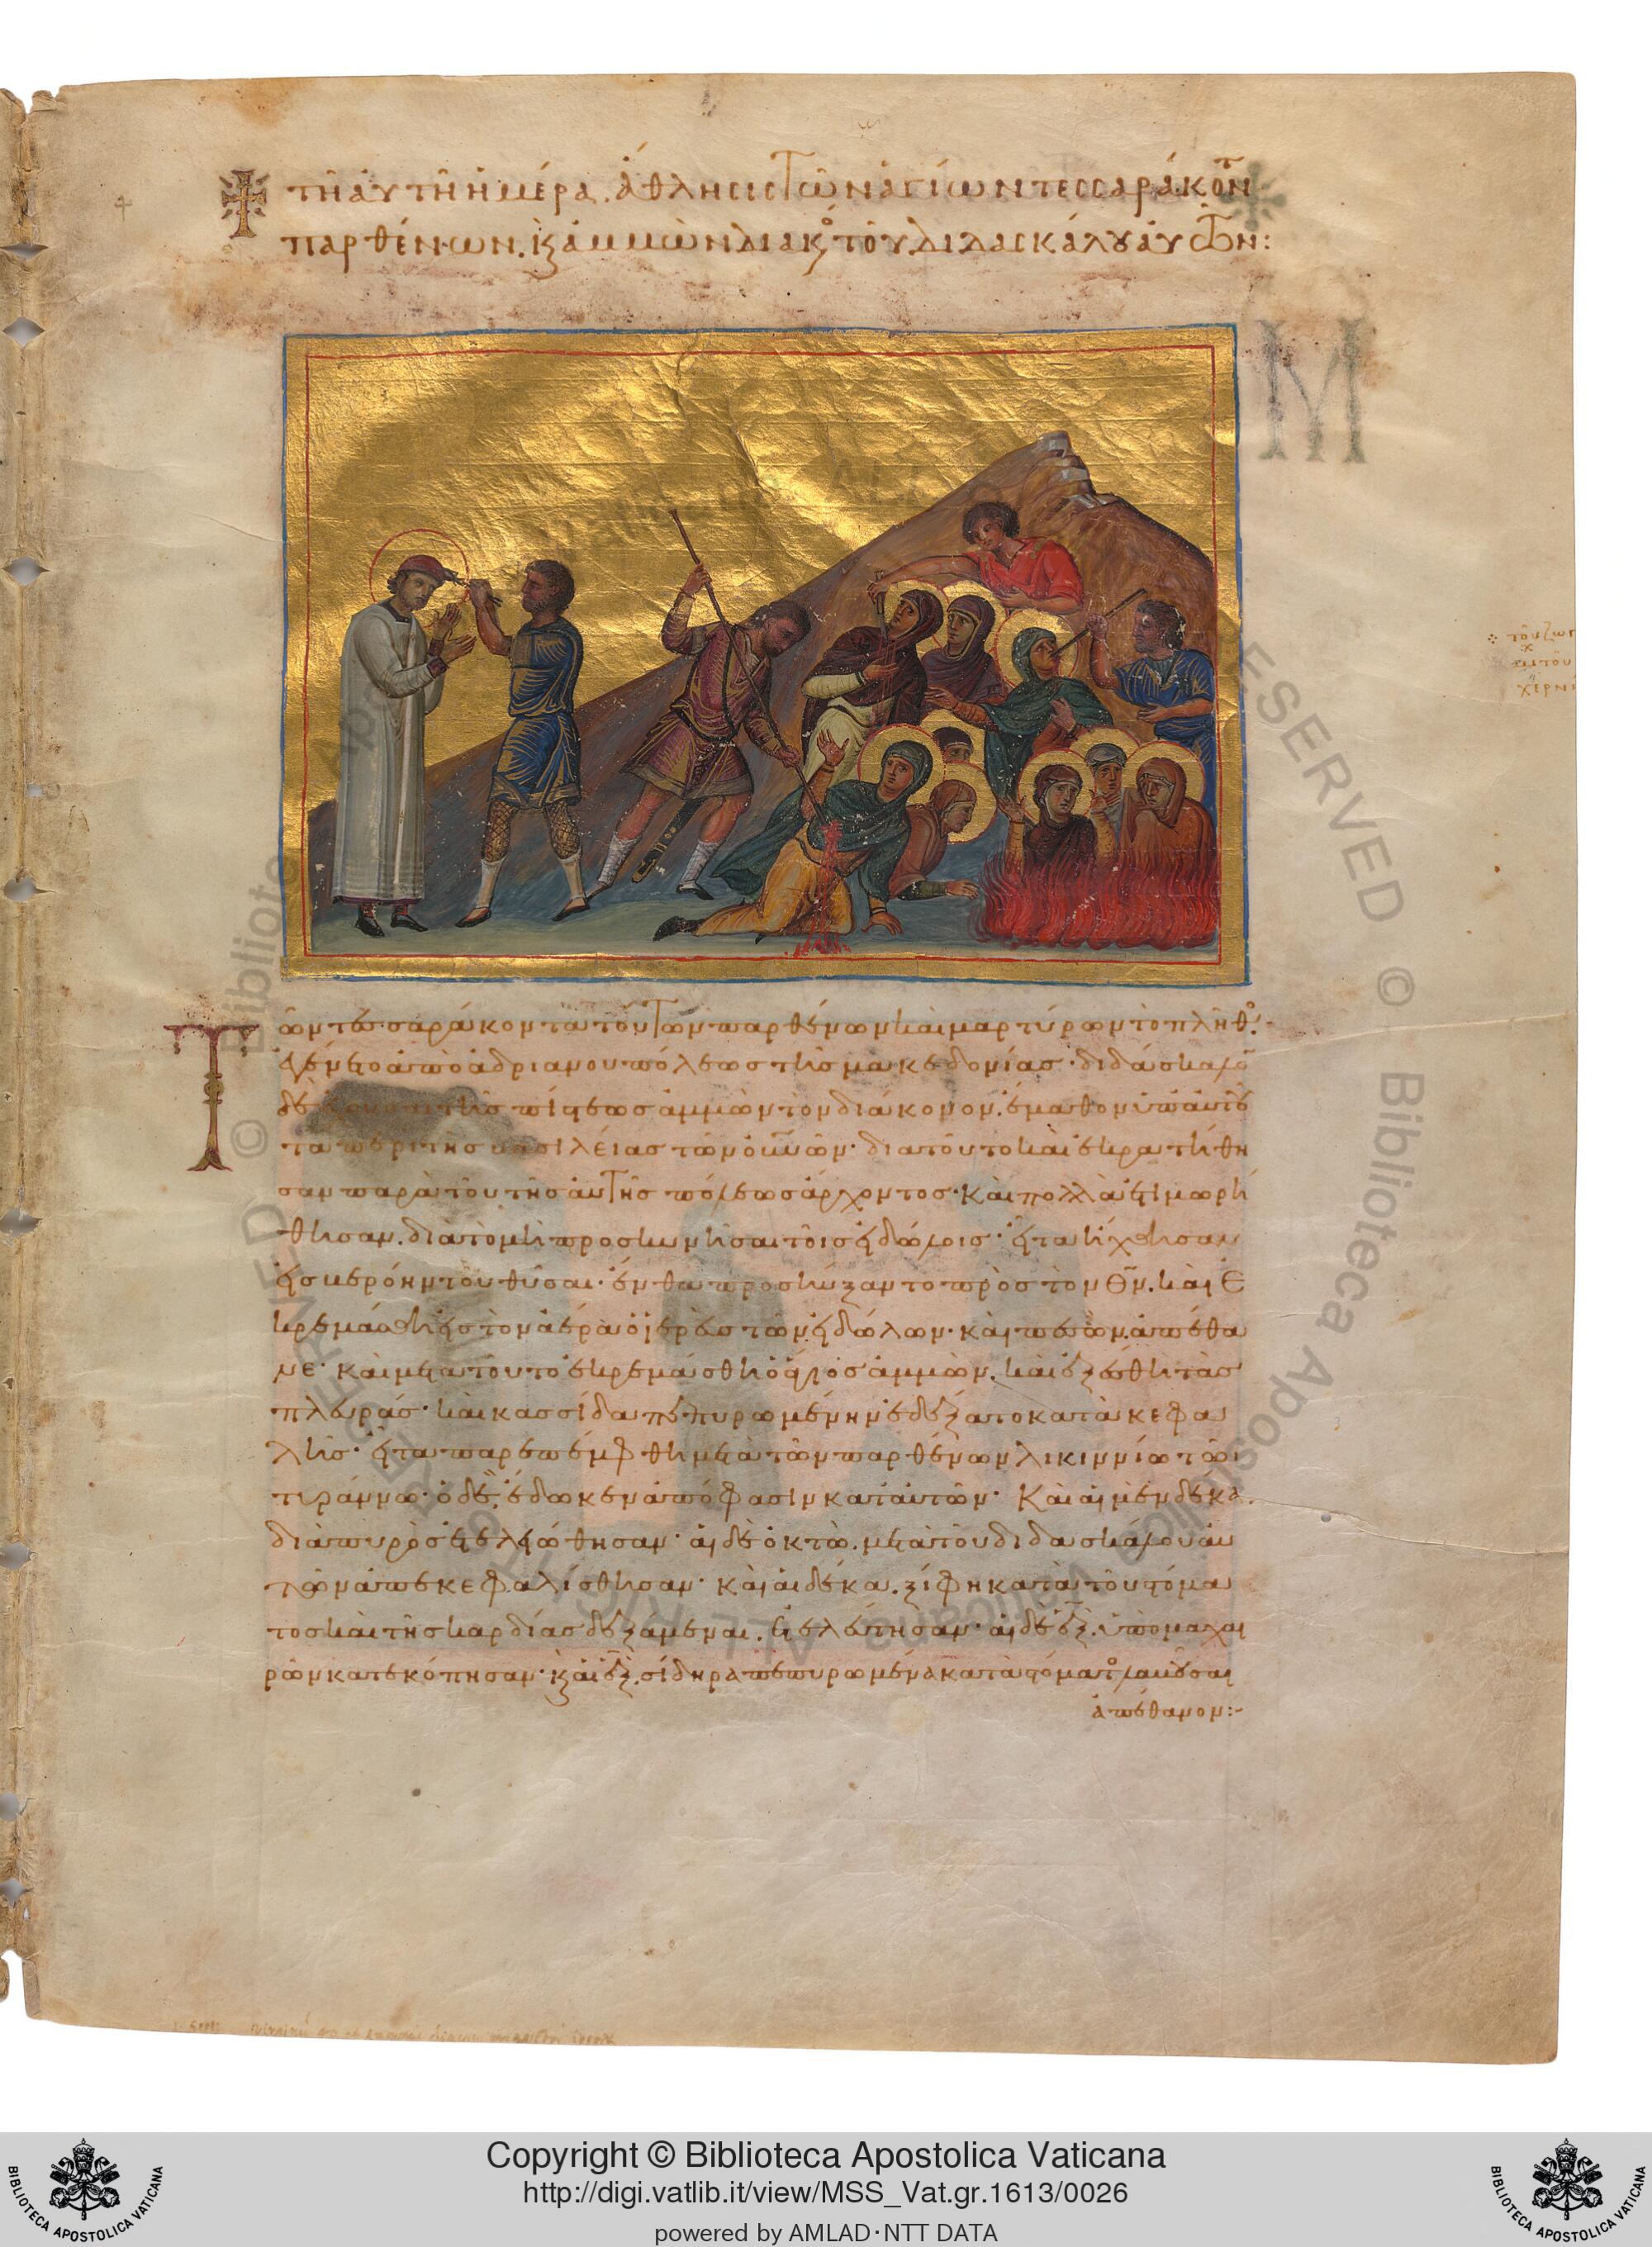 τῇ αὐτῇ ἡμέρα. ἄθλησις τῶν ἁγίων τεσσαράκοντ
παρθένων. κ ἀμμὼν διακο τοῦ διδασκάλου αὐτῶν:
Τῶν τεσσαράκοντα τούτων παρθένων καὶ μαρτύρων τὸ πλῆθο.
ἐγένετο ἀπὸ ἀδριανουπόλεως τῆς μακεδονίας. διδάσκαλο
δὲ τῆς πίστεως ἀμμὼν τὸν διάκονον. ἔμαθον ὑπ αὐτοῦ
τὰ περὶ τῆς βασιλείας τῶν οὐνῶν. διὰ τοῦτο καὶ ἐκρατήθη
σαν παρὰ τοῦ τῆς αὐτῆς πόλεως ἄρχοντος. καὶ πολλὰ ἐτιμωρή
θησαν. διὰ τὸ μὴ προσκυνῆσαι τοῖς εἰδώλοις. εἶτα ἤχθησαν
εἰς βερόην τοῦ θῦσαι. ἔνθα προσηύξαντο πρὸς τὸν θν. καὶ ἐ
κρεμάσθη εἰς τὸν ἀέρα ὁ ἱερεὺς τῶν εἰδώλων. καὶ πεσὼν. ἀπέθα
νε. καὶ μετὰ τοῦτο ἐκρεμάσθη ὁ ἅγιος ἀμμὼν. καὶ ἐξέσθη τὰς
πλευράς. καὶ κασσίδα πεπυρωμένην ἐδέξατο κατὰ κεφα
λῆς. εἶτα παρεπέμφθη μετὰ τῶν παρθένων λικιννίω τῶ
τυράννω. ὁ δὲ. ἔδωκεν ἀπόφασιν κατ αὐτῶν. Καὶ αἱ μὲν δέκα.
διὰ πυρὸς ἐτελειώθησαν. αἱ δὲ ὀκτὼ. μετὰ τοῦ διδασκάλου αὐ
τῶν ἀπεκεφαλίσθησαν. καὶ αἱ δέκα. ξίφη κατὰ τοῦ στόμα
τος καὶ τῆς καρδίας δεξάμεναι. ἐτελειώθησαν. αἱ δὲ ἓξ. ὑπὸ μαχαι
ρῶν κατεκόπησαν. κ αἱ ἓξ. σίδηρα πεπυρωμένα κατὰ στόματος λαβοῦσαι
ἀπέθανον:-
Copyright © Biblioteca Apostolica Vaticana
http://digi.vatlib.it/view/MSS_Vat.gr.1613/0026
powered by AMLAD·NTT DATA
BIBLIOTECA APOSTOLICA VATICANA
BIBLIOTECA APOSTOLICA VATICANA